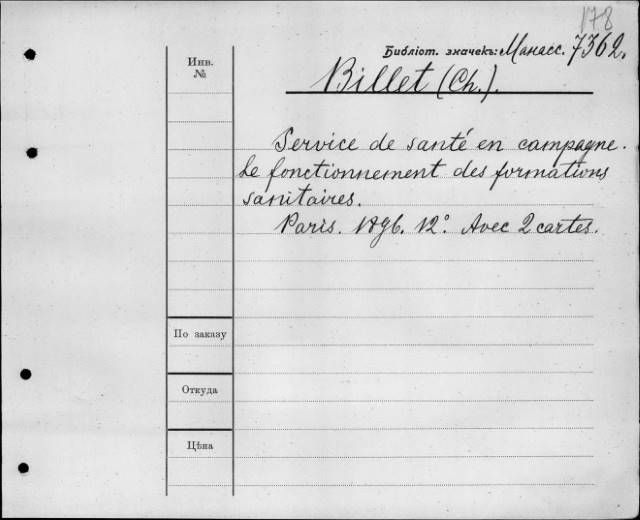 178
Библіот. значекъ: Манасс. 7362.
Инв.
№
Billet (Ch.).
Service de santé en campagne.
Le fonctionnement des formations
sanitaires.
Paris. 1896. 12°. Avec 2 cartes.
По заказу
Откуда
Цѣна